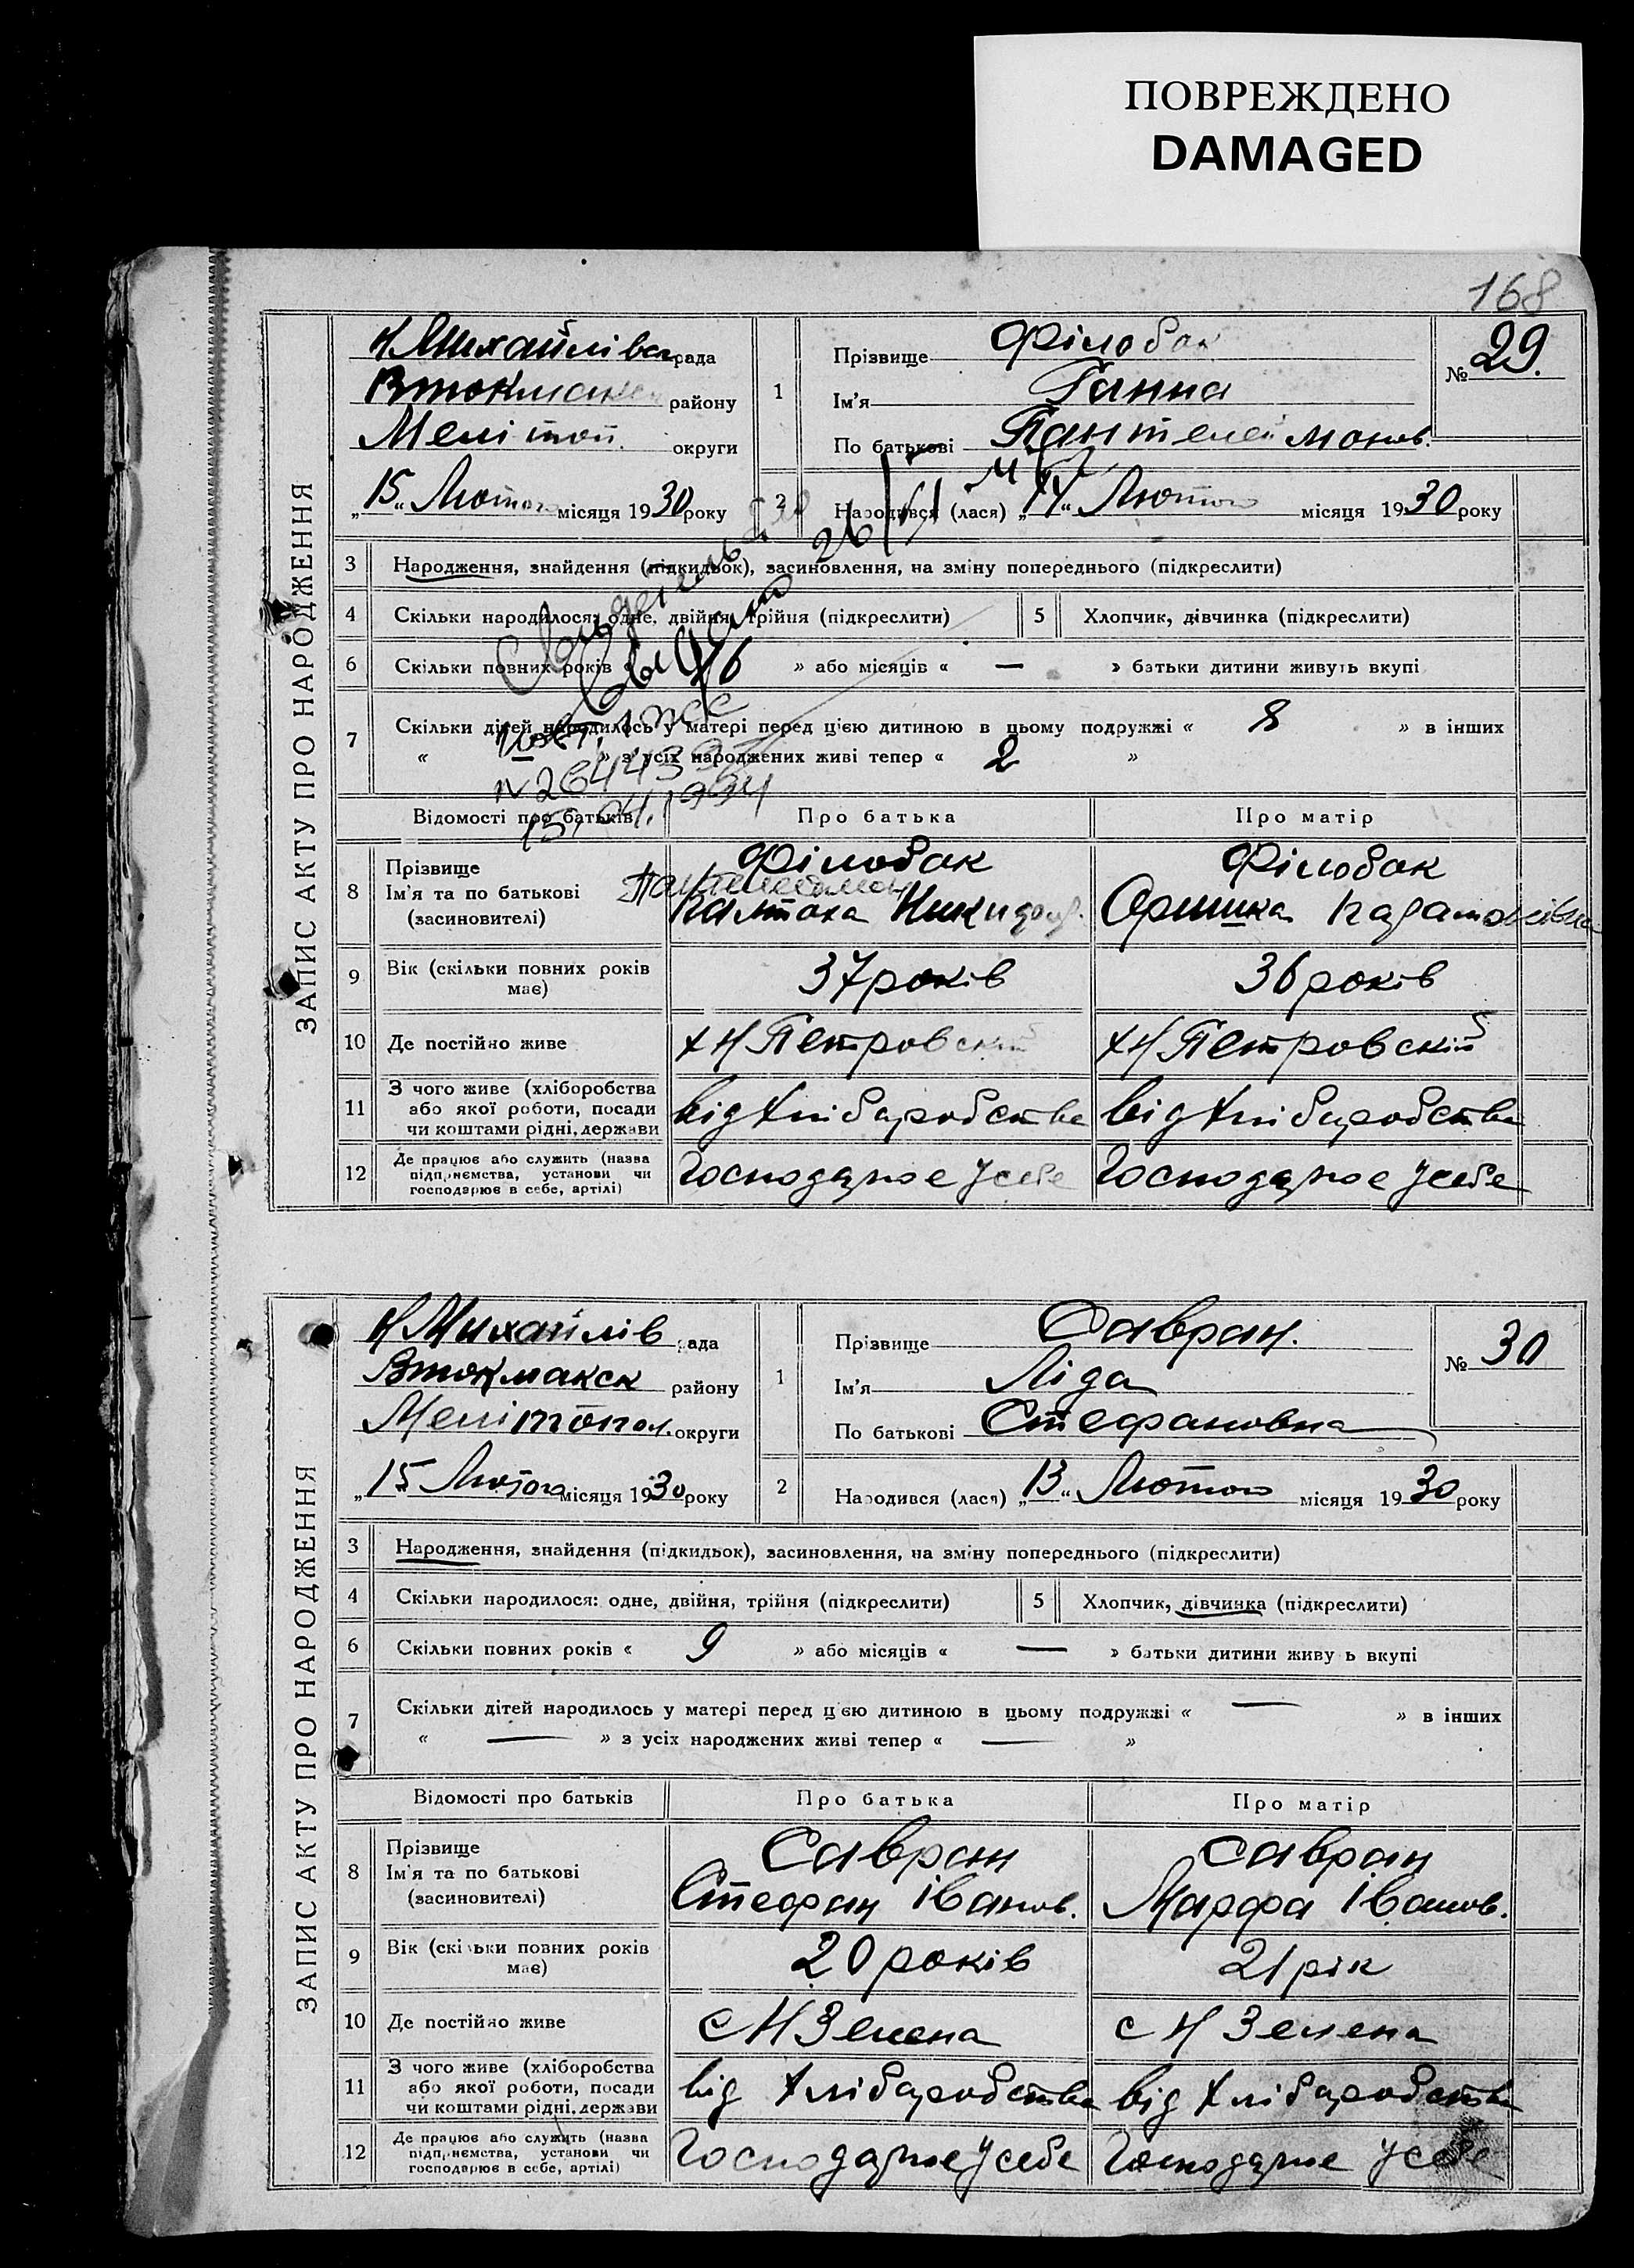 ПОВРЕЖДЕНО
DAMAGED
168
ЗАПИС АКТУ ПРО НАРОДЖЕННЯ
Н Михайлівск рада
району
Мелітоп. округи
„15“ Лютого місяця 1930 року
1
Прізвище Філобок
Ім'я Ганна
По батькові Пантелеймонов.
№ 29.
2
Народився (лася) „14“ Лютого місяця 1930 року
3 Народження, знайдення (підкидьок), засиновлення, на зміну попереднього (підкреслити)
4 Скільки народилося: одне, двійня, трійня (підкреслити) 5 Хлопчик, дівчинка (підкреслити)
6 Скільки повних років « 16 » або місяців « — » батьки дитини живуть вкупі
7 Скільки дітей народилось у матері перед цією дитиною в цьому подружжі « 8 » в інших
« — » з усіх народжених живі тепер « 2 »
26/VI
Свидетельство
Выдано
№ 2644337
Відомості про батьків Про батька Про матір
8 Прізвище
Ім'я та по батькові
(засновителі)
Філобок
Пантелеймон
Філобок
Оришка
9 Вік (скільки повних років має) 37 років 36 років
10 Де постійно живе х Н Петровский х Н Петровский
11 З чого живе (хліборобства
або якої роботи, посади
чи коштами рідні, держави
від хліборобства від хліборобства
12 Де працює або служить (назва
підприємства, установи чи
господарює в себе, артілі)
Господарює у себе Господарює у себе
ЗАПИС АКТУ ПРО НАРОДЖЕННЯ
Н Михайлів рада
Втокмакск району
Мелітопол. округи
„15 Лютого місяця 1930 року
1
Прізвище Савран.
Ім'я Ліда
По батькові Стефановна
№ 30
2
Народився (лася) „13“ Лютого місяця 1930 року
3 Народження, знайдення (підкидьок), засиновлення, на зміну попереднього (підкреслити)
4 Скільки народилося: одне, двійня, трійня (підкреслити) 5 Хлопчик, дівчинка (підкреслити)
6 Скільки повних років « 9 » або місяців « — » батьки дитини живуь вкупі
7 Скільки дітей народилось у матері перед цією дитиною в цьому подружжі « — » в інших
« — » з усіх народжених живі тепер « — »
Відомості про батьків Про батька Про матір
8 Прізвище
Ім'я та по батькові
(засиновителі)
Савран
Стефан Іванов.
Савран
Марфа Іванов.
9 Вік (скільки повних років має) 20 років 21 рік
10 Де постійно живе с Н Зелена с Н Зелена
11 З чого живе (хліборобства
або якої роботи, посади
чи коштами рідні, держави
від хліборобства від хліборобства
12 Де працює або служить (назва
підприємства, установи чи
господарює в себе, артілі)
Господарює у себе Господарює у себе